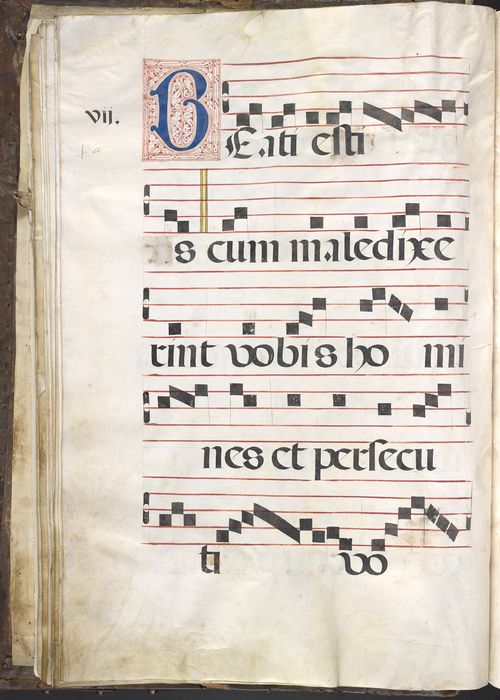 vij.
BEati esti
s cum maledixe
rint vobis ho mi
nes et persecu
ti vo